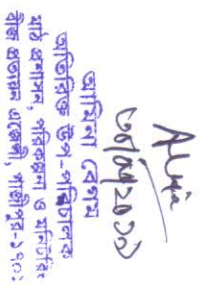 আমিনা বেগম
অতিরিক্ত উপ-পরিচালক
মাঠ প্রশাসন, পরিকল্পনা ও মনিটরিং
বীজ প্রত্যয়ন এজেন্সী, গাজীপুর-১৭০১